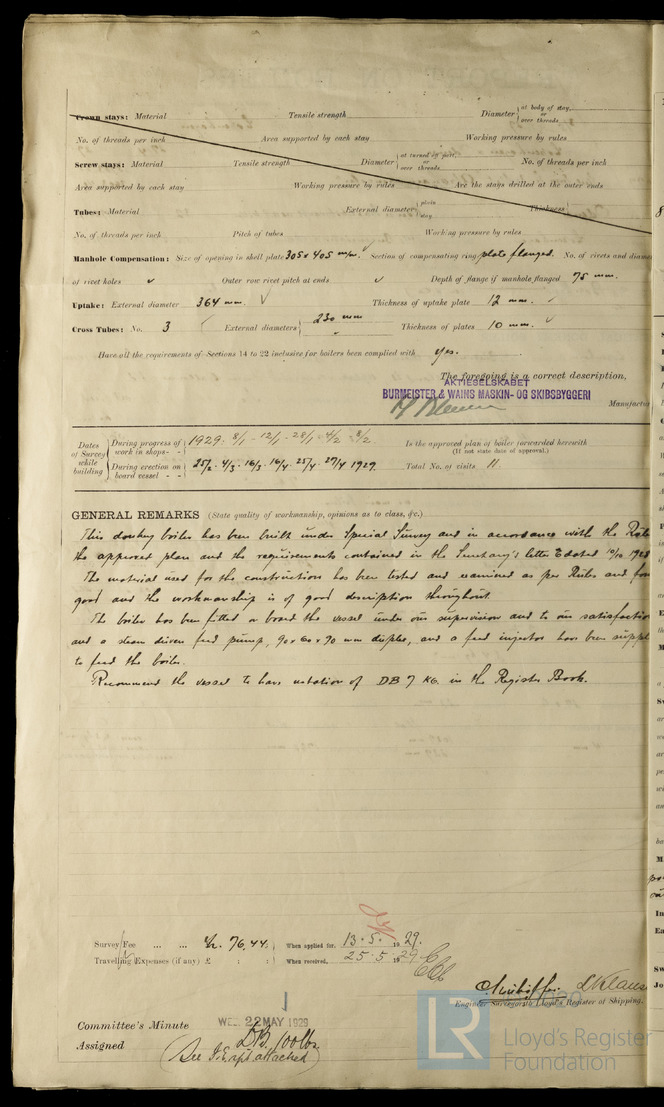 Crown stays: Material Tensile strength Diameter { at body of stay, or over threads
No. of threads per inch Area supported by each stay Working pressure by rules
Screw stays: Material Tensile strength Diameter { at turned off part, or over threads No. of threads per inch
Area supported by each stay Working pressure by rules Are the stays drilled at the outer ends
Tubes: Material External diameter { plain stay Thickness {
No. of threads per inch Pitch of tubes Working pressure by rules
Manhole Compensation: Size of opening in shell plate 305 x 405 m/m. Section of compensating ring plate flanged. No. of rivets and diam
of rivet holes Outer row rivet pitch at ends Depth of flange if manhole flanged 75 mm.
Uptake: External diameter 364 mm. Thickness of uptake plate 12 mm.
Cross Tubes: No. 3 External diameters { 230 mm Thickness of plates 10 mm.
Have all the requirements of Sections 14 to 22 inclusive for boilers been complied with yes.
The foregoing is a correct description,
AKTIESELSKABET
BURMEISTER & WAINS MASKIN- OG SKIBSBYGGERI
Manufactur
Dates of Survey while building
During progress of work in shops - - 1929. 8/1 - 12/1 - 28/1 - 4/2
Is the approved plan of boiler forwarded herewith
(If not state date of approval.)
During erection on board vessel - - 25/2 - 4/3 - 16/3 - 16/4 - 25/4 - 27/4 1929
Total No. of visits 11.
GENERAL REMARKS (State quality of workmanship, opinions as to class, &c.)
This donkey boiler has been built under Special Survey and in accordance with the Rule
the approved plan and the requirements contained in the Secretary's letter E dated 10/10 1928
The material used for the construction has been tested and examined as per Rules and fou
good and the workmanship is of good description throughout
The boiler has been fitted on board the vessel under our supervision and to our satisfaction
and a steam driven feed pump, 90 x 60 x 70 mm duplex, and a feed injector have been suppl
to feed the boiler.
Recommend the vessel to have notation of DB 7 KG. in the Register Book.
Survey Fee ... ... Kr. 76.44 : When applied for, 13.5.1929.
Travelling Expenses (if any) £ : : When received, 25.5.1929
Engineer Surveyor to Lloyd's Register of Shipping.
Committee's Minute WED. 22 MAY 1929
Assigned DB. 100 lbs.
attached
LR
Lloyd's Register
Foundation